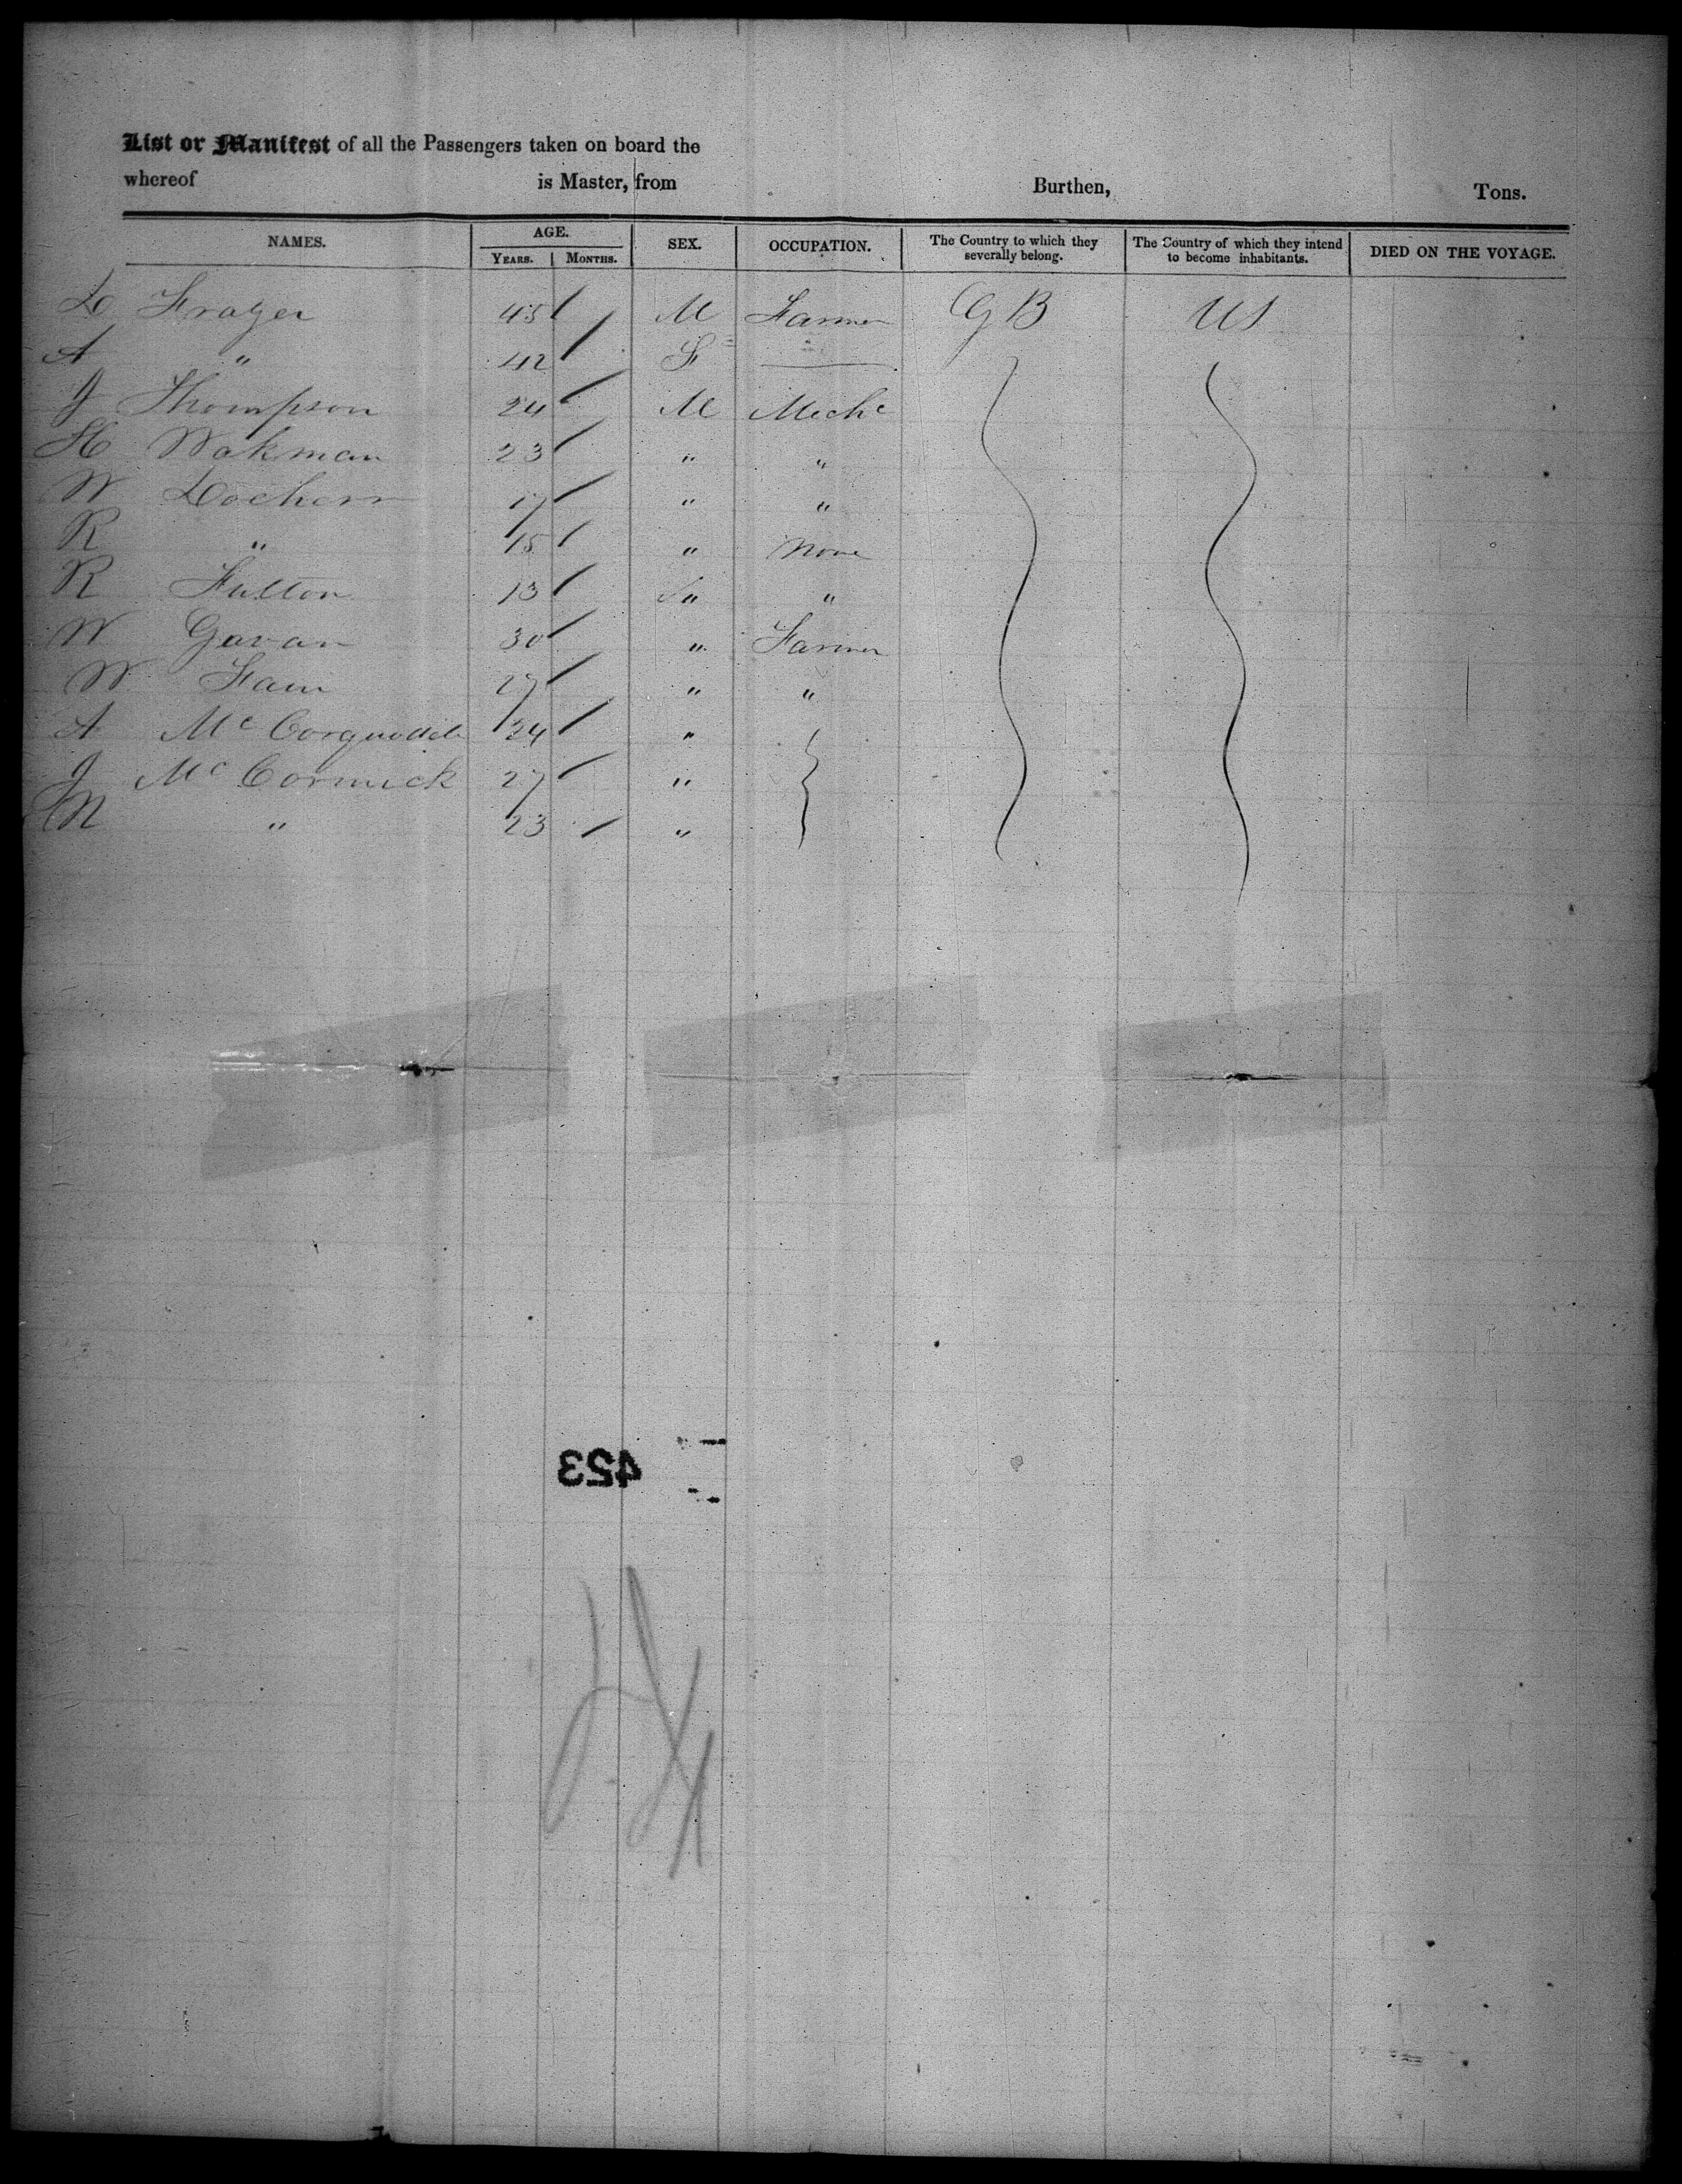 List or Manifest of all the Passengers taken on board the
whereof is Master, from Burthen, Tons.
NAMES. AGE. YEARS. MONTHS. SEX. OCCUPATION. The Country to which they severally belong. The Country of which they intend to become inhabitants. DIED ON THE VOYAGE.
D Frazer 45 M Farmer G B U S
A " 42 F
J Thompson 24 M Mechc
H Wakman 23 " "
W Docherr 17 " "
R " 15 " None
R Fulton 13 " "
W Gavan 30 " Farmer
W Fain 27 " "
A Mc Corquodale 24 "
J Mc Cormick 27 "
M " 23 "
423